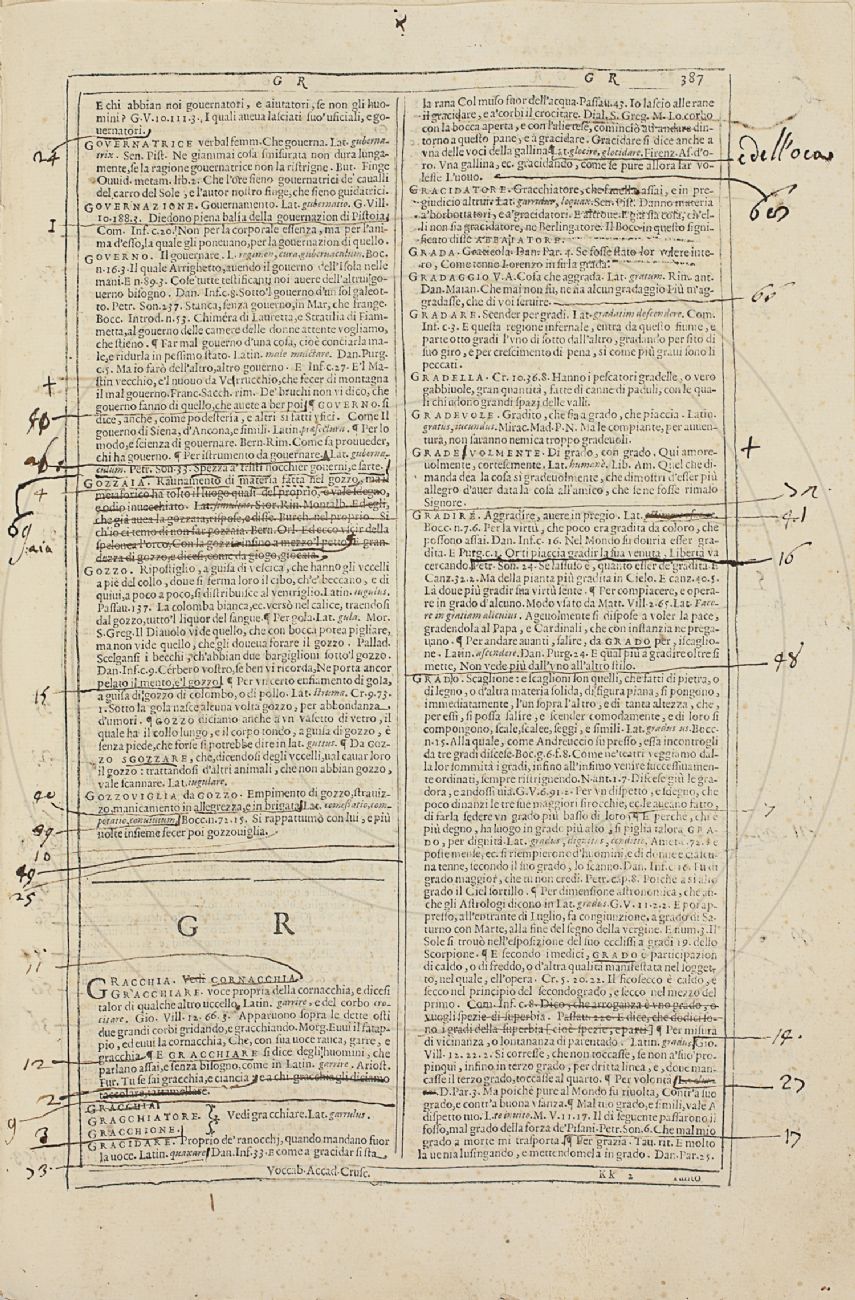 G R
G R 387
E chi abbian noi gouernatori, e aiutatori, se non gli huo-
mini? G. V. 10. 111. 3. I quali aueua lasciati suo' uficiali, e go-
uernatori.
24
GOVERNATRICE verbal femm. Che gouerna. Lat. guberna-
trix. Sen. Pist. Ne giammai cosa smisurata non dura lunga-
mente, se la ragione gouernatrice non la ristrigne. But. Finge
Ouuid. metam. lib. 2. Che l'ore sieno gouernatrici de' caualli
del carro del Sole, e l'autor nostro finge, che sieno guidatrici.
GOVERNAZIONE. Gouernamento. Lat. gubernatio. G. Vill.
1
10. 188. 3. Diedono piena balìa della gouernazion di Pistoia
Com. Inf. c. 20. Non per la corporale essenza, ma per l'ani-
ma d'esso, la quale gli poneuano, per la gouernazion di quello.
GOVERNO. Il gouernare. L. regimen, cura, gubernaculum. Boc.
n. 16. 3. Il quale Arrighetto, auendo il gouerno dell'Isola nelle
mani. E n. 89. 3. Cose tutte testificanti noi auere dell'altrui go-
uerno bisogno. Dan. Inf. c. 8. Sotto'l gouerno d'un sol galeot-
to. Petr. Son. 237. Stanca, senza gouerno, in Mar, che frange.
Bocc. Introd. n. 53. Chimera di Lauretta, e Stratilia di Fiam-
metta, al gouerno delle camere delle donne attente vogliamo,
che stieno. ¶ Far mal gouerno d'una cosa, cioè conciarla ma-
le, e ridurla in pessimo stato. Latin. male mulctare. Dan. Purg.
c. 5. Ma io farò dell'altro, altro gouerno. E Inf. c. 27. E'l Ma-
stin vecchio, e'l nuouo da Verrucchio, che fecer di montagna
il mal gouerno. Franc. Sacch. rim. De' bruchi non vi dico, che
gouerno fanno di quello, che auete a ber poi ¶ GOVERNO. si
dice, anche, come podesteria, e altri sì fatti vfici. Come Il
gouerno di Siena, d'Ancona, e simili. Latin. præfectura. ¶ Per lo
modo, e scienza di gouernare. Bern. Rim. Come sa prouueder,
chi ha gouerno. ¶ Per istrumento da gouernare. Lat. guberna-
culum. Petr. Son. 33. Spezza a' tristi nocchier gouerni, e sarte.
GOZZAIA. Raunamento di materia fatta nel gozzo, ma il
metaforico ha tolto il luogo quasi del proprio, o vale sdegno,
e odio inuecchiato. Lat. simultas. Stor. Rin. Montalb. Ed egli,
che già auea la gozzaia, rispose, e disse. Burch. nel proprio. Si
ch'io ci temo di non far gozzaia. Bern. Orl. Ed ecco vscir della
spelonca l'orco, Con la gozzaia insino a mezzo'l petto. E gran-
dezza di gozzo, e dicesi, come da giogo, giogaia.
GOZZO. Ripostiglio, a guisa di vescica, che hanno gli vccelli
a piè del collo, doue si ferma loro il cibo, ch'e' beccano, e di
quiui, a poco a poco, si distribuisce al ventriglio. Latin. ingluuies.
Passau. 137. La colomba bianca, ec. versò nel calice, traendosi
dal gozzo, tutto'l liquor del sangue. ¶ Per gola. Lat. gula. Mor.
S. Greg. Il Diauolo vide quello, che con bocca potea pigliare,
ma non vide quello, che gli doueua forare il gozzo. Pallad.
Scelgansi i becchi, ch'abbian due bargiglioni sotto'l gozzo.
Dan. Inf. c. 9. Cerbero vostro, se ben vi ricorda, Ne porta ancor
pelato il mento, e'l gozzo. ¶ Per vn certo enfiamento di gola,
15
a guisa di gozzo di colombo, o di pollo. Lat. struma. Cr. 9. 73.
1. Sotto la gola nasce alcuna volta gozzo, per abbondanza
d'umori. ¶ GOZZO diciamo anche a vn vasetto di vetro, il
quale ha il collo lungo, e il corpo tondo, a guisa di gozzo, è
senza piede, che forse si potrebbe dire in lat. guttus. ¶ Da GOZ-
ZO SGOZZARE, che, dicendosi degli vccelli, val cauar loro
il gozzo: trattandosi d'altri animali, che non abbian gozzo,
vale scannare. Lat. iugulare.
GOZZOVIGLIA da GOZZO. Empimento di gozzo, strauiz-
zo, manicamento in allegrezza, e in brigata. Lat. comessatio, com-
potatio, conuiuium. Bocc. n. 72. 15. Si rappattumò con lui, e più
uolte insieme fecer poi gozzouiglia.
10
25
G R
11
GRACCHIA. Vedi CORNACCHIA.
GRACCHIARE. voce propria della cornacchia, e dicesi
talor di qualche altro uccello. Latin. garrire, e del corbo cro-
citare. Gio. Vill. 12. 66. 3. Apparuono sopra le dette osti
due grandi corbi gridando, e gracchiando. Morg. Euui il fatap-
pio, ed euui la cornacchia, Che, con sua uoce rauca, garre, e
gracchia. ¶ E GRACCHIARE si dice degli huomini, che
12
parlano assai, e senza bisogno, come in Latin. garrire. Ariost.
Fur. Tu se sai gracchia, e ciancia, e a chi gracchia gli diciamo
2
taccolare, tattamellare.
GRACCHIA
GRACCHIATORE. Vedi gracchiare. Lat. garrulus.
9
GRACCHIONE.
3
GRACIDARE. Proprio de' ranocchj, quando mandano fuor
la uoce. Latin. quaxare. Dan. Inf. 33. E come a gracidar si sta
33
Voccab. Accad. Crusc.
la rana Col muso fuor dell'acqua. Passau. 43. Io lascio alle rane
il gracidare, e a' corbi il crocitare. Dial. S. Greg. M. Lo corbo
con la bocca aperta, e con l'alie tese, cominciò ad andare din-
torno a questo pane, e a gracidare. Gracidare si dice anche a
e dell'oca
vna delle voci della gallina. Lat. glocire, glocidare. Firenz. As. d'o-
ro. Vna gallina, ec. gracidando, come se pure allora far vo-
lesse L'uouo.
GRACIDATORE. Gracchiatore, che fauella assai, e in pre-
giudicio altrui. Lat. garrulus, loquax. Sen. Pist. Danno materia
a' borbottatori, e a' gracidatori.
li non sia gracidatore, ne Berlingatore. Il Bocc. in questo signi-
ficato disse ABBAIATORE.
GRADA. Graticola. Dan. Par. 4. Se fosse stato lor volere inte-
ro, Come tenne Lorenzo in su la grada.
GRADAGGIO V. A. Cosa che aggrada. Lat. gratum. Rim. ant.
Dan. Maian. Che mai non fu, ne fia alcun gradaggio Più m'ag-
gradasse, che di voi seruire.
66
GRADARE. Scender per gradi. Lat. gradatim descendere. Com.
Inf. c. 3. E questa regione infernale, entra da questo fiume, e
parte otto gradi l'vno di sotto dall'altro, gradando per sito di
suo giro, e per crescimento di pena, sì come più graui sono li
peccati.
GRADELLA. Cr. 10. 36. 8. Hanno i pescatori gradelle, o vero
gabbiuole, gran quantità, fatte di canne di paduli, con le qua-
li chiudono grandi spazj delle valli.
GRADEVOLE. Gradito, che sia a grado, che piaccia. Latin.
gratus, iucundus. Mirac. Mad. P. N. Ma le compiante, per auuen-
tura, non saranno nemica troppo gradeuoli.
GRADEVOLMENTE. Di grado, con grado. Qui amore-
uolmente, cortesemente. Lat. humanè. Lib. Am. Quel che di-
manda dea la cosa sì gradeuolmente, che dimostri d'esser più
allegro d'auer data la cosa all'amico, che se ne fosse rimaso
Signore.
GRADIRE. Aggradire, auere in pregio. Lat.
41
Bocc. n. 7. 6. Per la virtù, che poco era gradita da coloro, che
possono assai. Dan. Inf. c. 16. Nel Mondo su douria esser gra-
dita. E Purg. c. 1. Or ti piaccia gradir la sua venuta, Libertà va
16
cercando. Petr. Son. 24. Se lassuso è, quanto esser de' gradita. E
Canz. 32. 2. Ma della pianta più gradita in Cielo. E canz. 40. 5.
Là doue più gradir sua virtù sente. ¶ Per compiacere, e opera-
re in grado d'alcuno. Modo vsato da Matt. Vill. 2. 65. Lat. Face-
re in gratiam alicuius. Ageuolmente si dispose a voler la pace,
gradendola al Papa, e Cardinali, che con instanzia ne prega-
uono. ¶ Per andare auanti, salire, da GRADO per, iscaglio-
ne. Latin. ascendere. Dan. Purg. 24. E qual più a gradire oltre si
mette, Non vede più dall'vno all'altro stilo.
48
GRADO. Scaglione: e scaglioni son quelli, che fatti di pietra, o
di legno, o d'altra materia solida, di figura piana, si pongono,
immediatamente, l'un sopra l'altro, e di tanta altezza, che,
per essi, si possa salire, e scender comodamente, e di loro si
compongono, scale, scalee, seggi, e simili. Lat. gradus us. Bocc.
n. 15. Alla quale, come Andreuccio fu presso, essa incontrogli
da tre gradi discese. Boc. g. 6. f. 8. Come ne' teatri veggiamo dal-
la lor sommità i gradi, infino all'infimo venire successiuamen-
te ordinati, sempre ristrignendo. N. ant. 1. 7. Discese giù le gra-
dora, e andossi uia. G. V. 6. 91. 2. Per vn dispetto, e sdegno, che
poco dinanzi le tre sue maggiori sirocchie, ec. le aucano fatto,
7
di farla sedere vn grado più basso di loro ¶ E perchè, chi è
più degno, ha luogo in grado più alto, si piglia talora GRA-
DO, per dignità. Lat. gradus, dignitas, conditio. Amet. 72. Se
posti e mente, ec. si riempierono d'huomini, e di donne e ciascu-
na tenne, secondo il suo grado, lo scanno. Dan. Inf. c. 16. Fu di
grado maggior, che tu non credi. Petr. cap. 8. Poichè a sì alto
grado il Ciel sortillo. ¶ Per dimensione astronomica, che an-
che gli Astrologi dicono in Lat. gradus. G. V. 11. 2. 2. E poi ap-
presso, all'entrante di Luglio, fa congiunzione, a grado di Sa-
turno con Marte, alla fine del segno della vergine. E num. 3. Il
Sole si trouò nell'esposizione del suo ecclissi a gradi 19. dello
Scorpione. ¶ E secondo i medici, GRADO è participazion
di caldo, o di freddo, o d'altra qualità manifestata nel sogget-
to, nel quale, ell'opera. Cr. 5. 20. 22. Il fico secco è caldo, e
secco nel principio del secondo grado, e secco nel mezzo del
primo. Com. Inf. c. 8. Dico, che arroganza è vno grado, o
vuogli spezie di superbia. Passau. 222. E dice, che dodici so-
no i gradi della superbia [cioè spezie, e parti] ¶ Per misura
di vicinanza, o lontananza di parentado. Latin. gradus. Gio.
14.
Vill. 12. 22. 2. Si corresse, che non toccasse, se non a' suo' pro-
pinqui, infino in terzo grado, per dritta linea, e, doue man-
casse il terzo grado, toccasse al quarto. ¶ Per volontà
23
D. Par. 3. Ma poichè pure al Mondo fu riuolta, Contr'a suo
grado, e contr'a buona vsanza. ¶ Mal tuo grado, e simili, vale A
dispetto tuo. Lat. te inuito. M. V. 11. 17. Il dì seguente passarono il
fosso, mal grado della forza de' Pisani. Petr. Son. 6. Che mal mio
grado a morte mi trasporta. ¶ Per grazia. Tau. rit. E molto
17
la uenia lusingando, e mettendomela in grado. Dan. Par. 25.
Kk 2